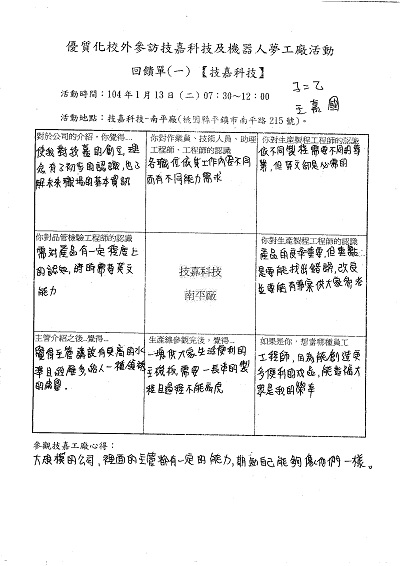 優質化校外參訪技嘉科技及機器人夢工廠活動
回饋單(一) 【技嘉科技】
子二乙
王嘉國
活動時間：104 年 1 月 13 日 (二) 07：30～12：00
活動地點：技嘉科技-南平廠(桃園縣平鎮市南平路 215 號)。
對於公司的介紹，你覺得…
使我對技嘉的創立、理
念有了初步的認識，也了
解未來職場的基本資訊
你對作業員、技術人員、助理
工程師、工程師的認識
各職位依其工作內容不同
而有不同能力需求
你對生產製程工程師的認識
依不同製程需要不同的專
業，但英文卻是必備的
你對品管檢驗工程師的認識
需對產品有一定程度上
的認知，時時需要英文
能力
技嘉科技
南平廠
你對生產製程工程師的認識
產品的良率重要，但重點
是要能找出錯誤，改良
並要有專業供大家參考
主管介紹之後…覺得…
當有主管講話有更高的水
準且經歷多給人一種領袖
的感覺。
生產線參觀完後，覺得…
一塊供大家生活便利的
主機板，需要一長串的製
程且過程不能馬虎
如果是你，想當哪種員工
工程師，因為能創造更
多便利的改品，能造福大
眾是我的榮幸
參觀技嘉工廠心得：
大規模的公司，裡面的主管都有一定的能力，期望自己能夠像你們一樣。